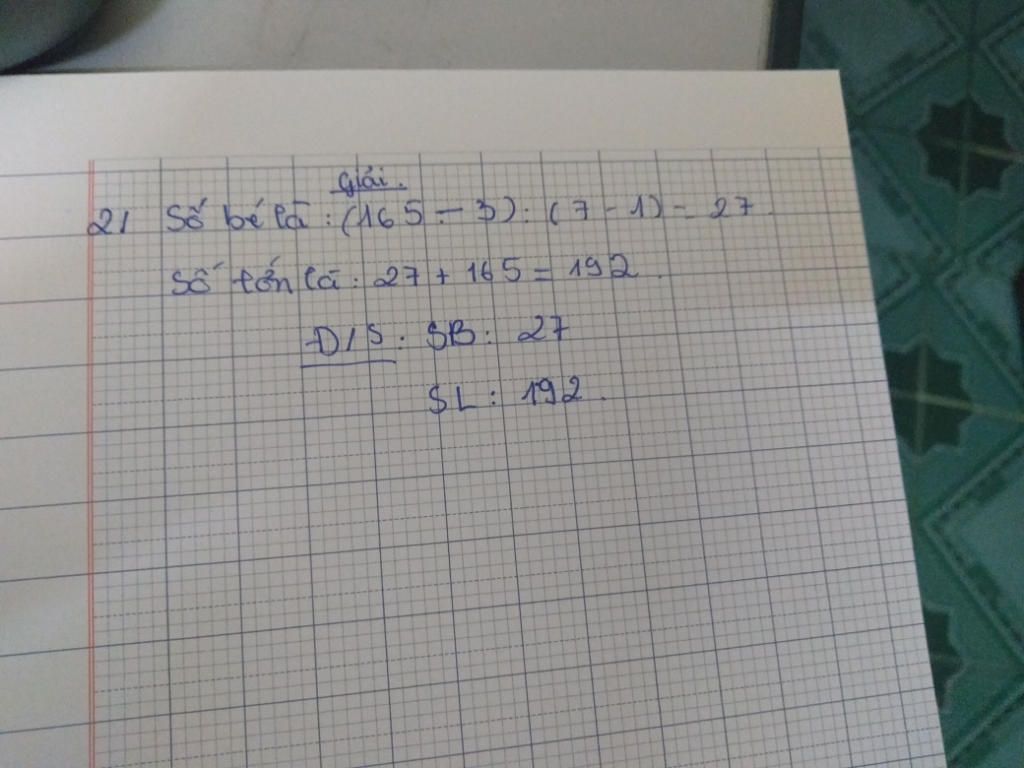 Giải.
21 Số bé là : (165 - 3) : (7 - 1) = 27.
Số lớn là : 27 + 165 = 192.
Đ/S : SB : 27
SL : 192.